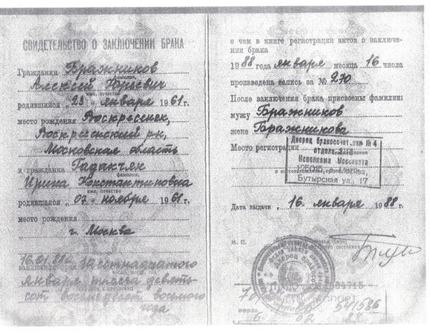 СВИДЕТЕЛЬСТВО О ЗАКЛЮЧЕНИИ БРАКА
Гражданин Бражников
Алексей Юрьевич
родившийся "23" января 1961 г.
место рождения Воскресенск,
Воскресенский р-н,
Московская область
и гражданка
Ирина Константиновна
родившаяся "02" ноября 1961 г.
место рождения
г. Москва
16.01.88 Шестнадцатого
января тысяча девять-
сот восемьдесят восьмого
года
о чем в книге регистрации актов о заключе-
нии брака
1988 года января месяца 16 числа
произведена запись за № 270
После заключения брака присвоены фамилии:
мужу Бражников
жене Бражникова
Место регистрации
Дворец бракосочет. № 4
отдела ЗАГС
Исполкома Моссовета
Бутырская ул., 17
Дата выдачи " 16 " января 1988 г.
М. П.